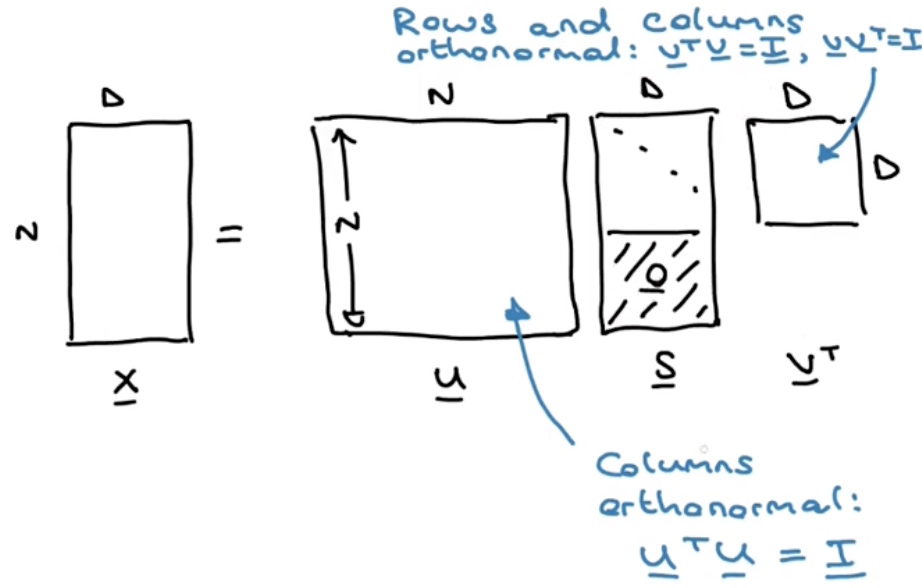 Rows and columns
orthonormal: V^T V = I, V V^T = I
D N D D
N = N 0 D
X U S V^T
Columns
orthonormal:
U^T U = I